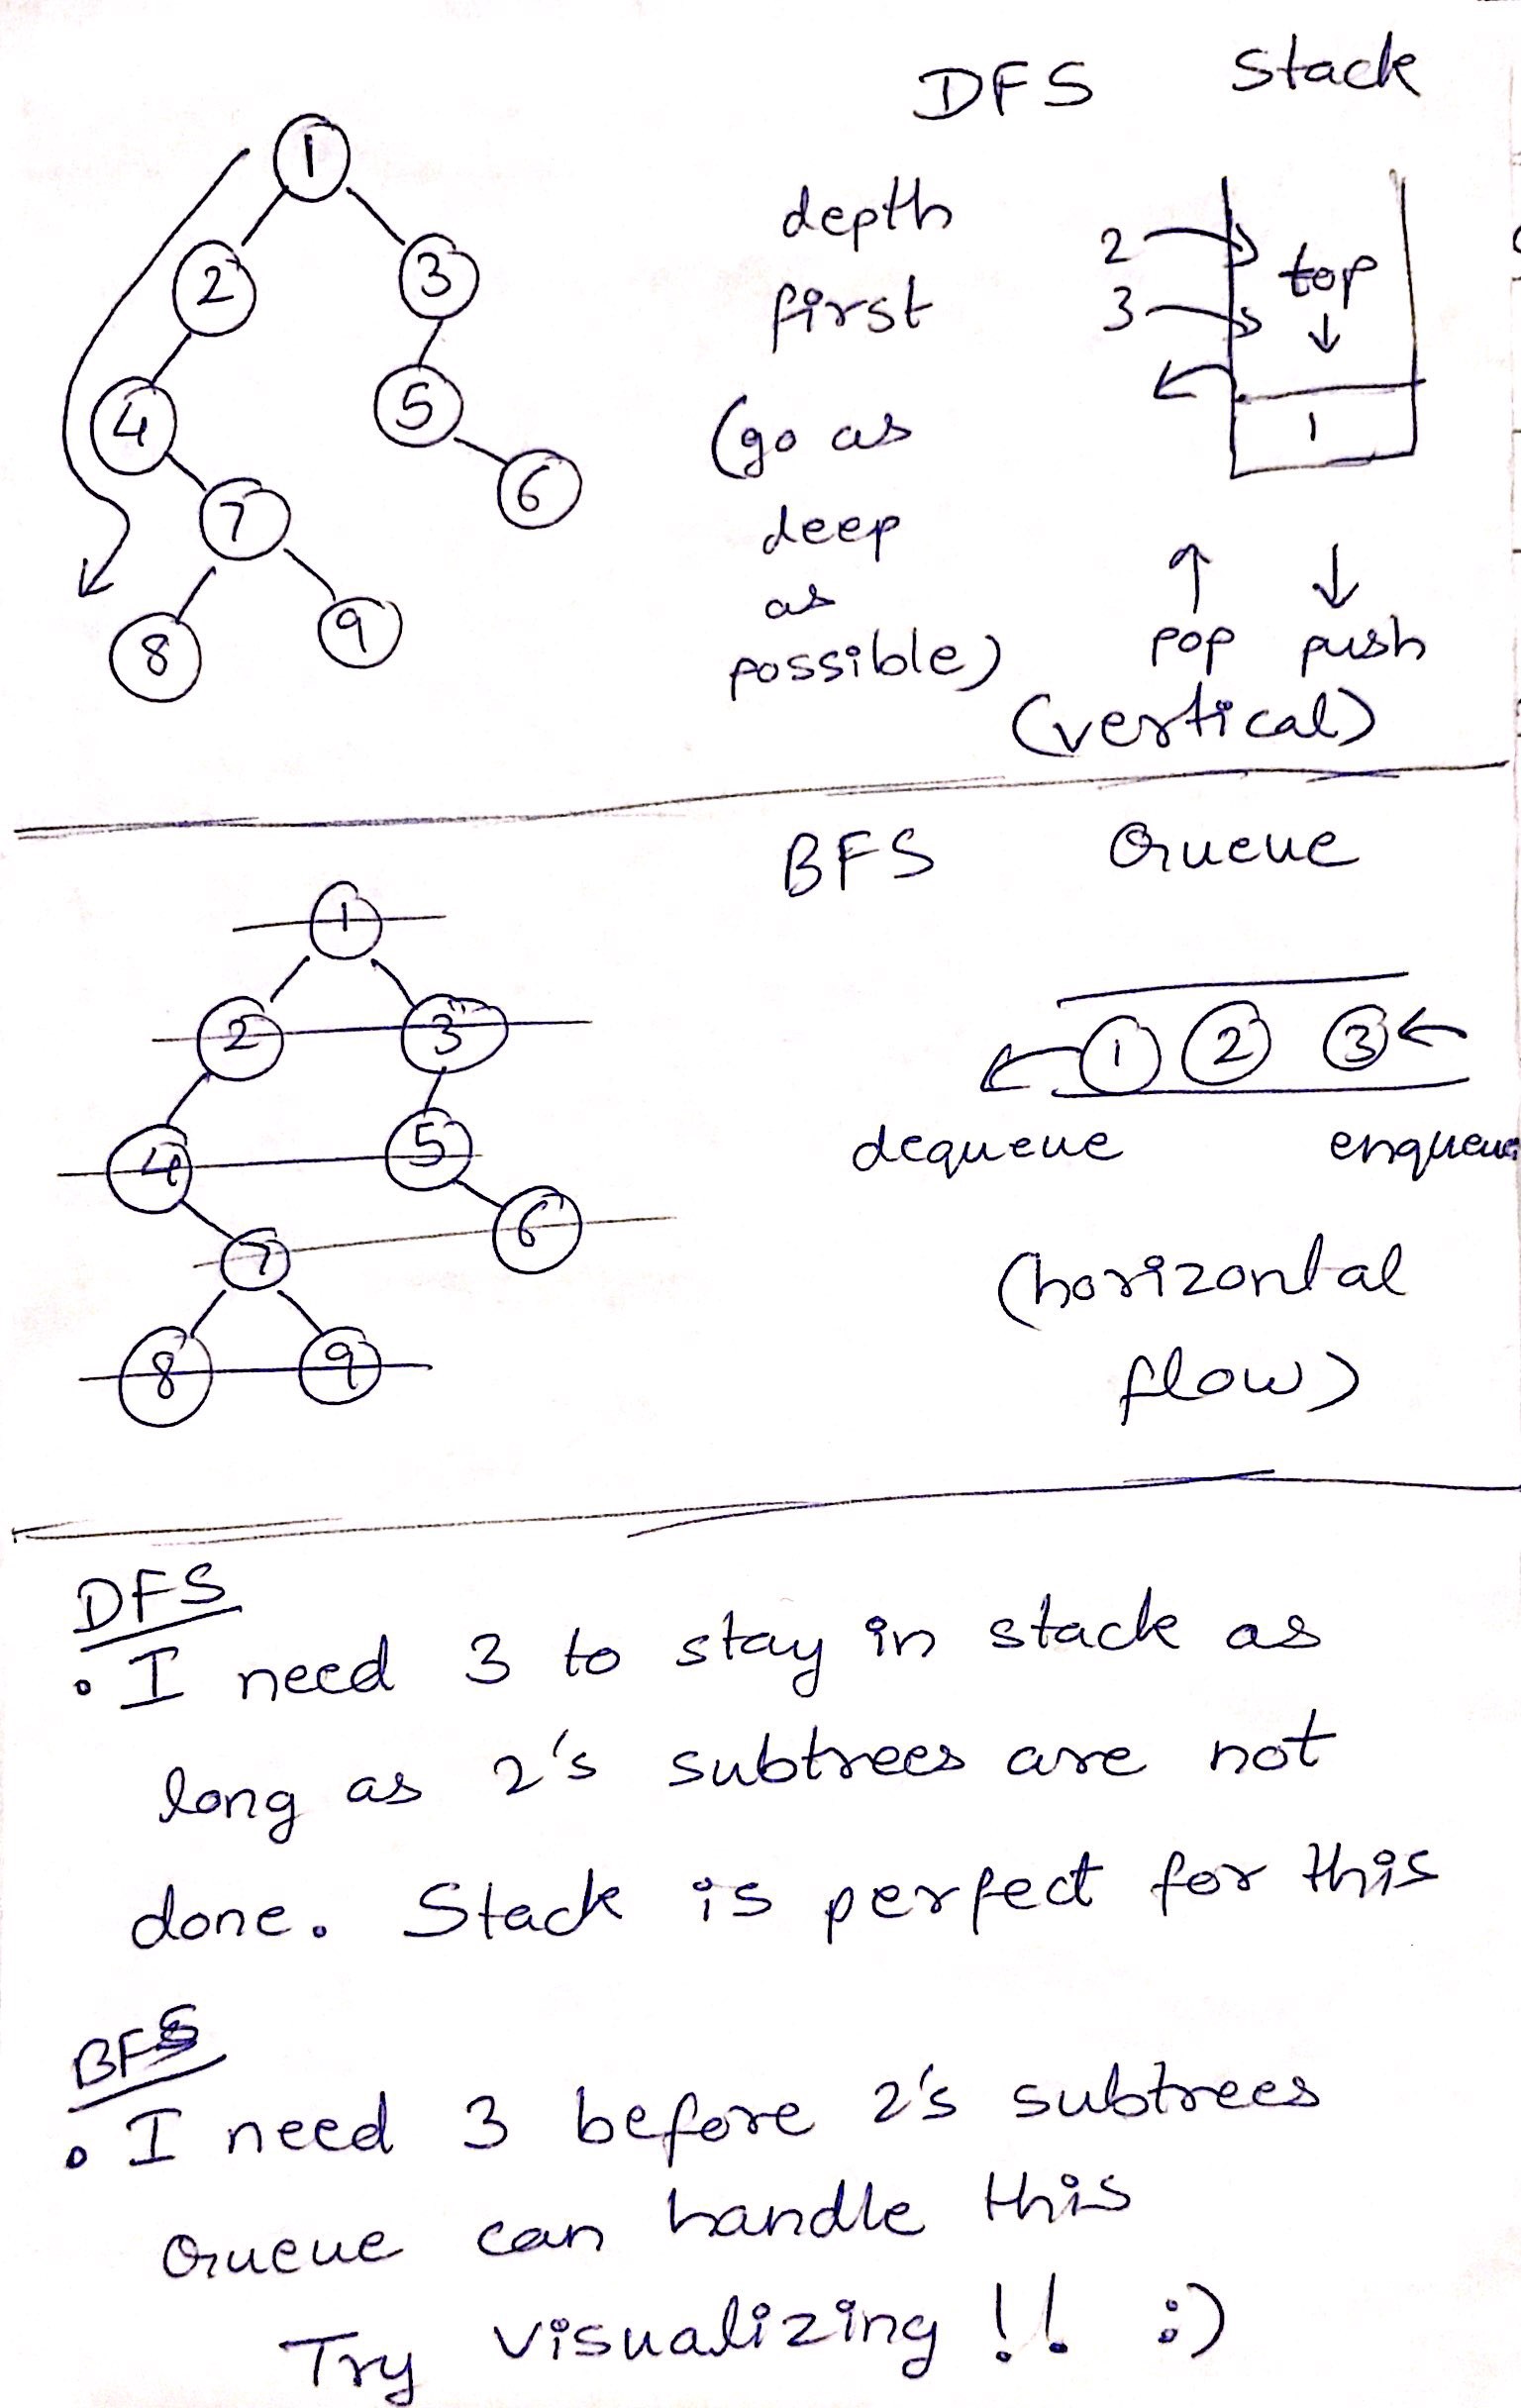 DFS Stack
1
2 3
4 5
7 6
8 9
depth
first
(go as
deep
as
possible)
2
3
top
1
pop push
(vertical)
BFS Queue
1
2 3
4 5
7 6
8 9
1 2 3
dequeue enqueue
(horizontal
flow)
DFS
• I need 3 to stay in stack as
long as 2's subtrees are not
done. Stack is perfect for this
BFS
• I need 3 before 2's subtrees
Queue can handle this
Try visualizing !! :)